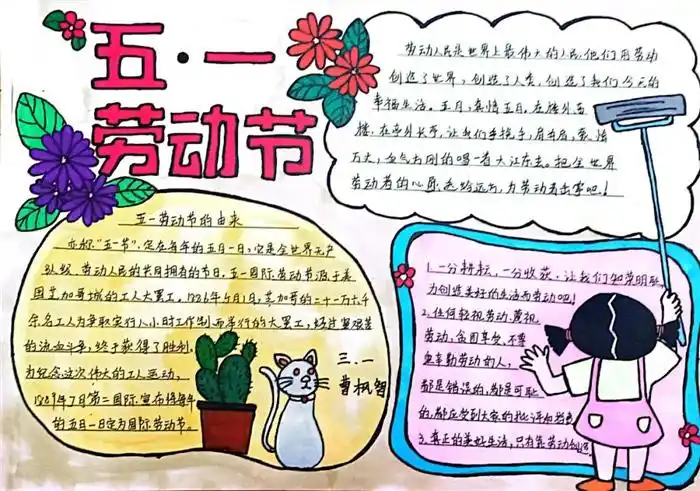 五·一
劳动节
劳动人民是世界上最伟大的人民,他们用劳动
创造了世界,创造了人类,创造了我们今天的
幸福生活。五月,真情五月。在楼外
楼,在亭外长亭,让我们手挽手,肩并肩,豪情
万丈,血气方刚的唱一首大江东去。把全世界
劳动者的心愿
五一劳动节的由来
亦称“五一节”,定在每年的五月一日,它是全世界无产
阶级、劳动人民的共同拥有的节日。五一国际劳动节源于美
国芝加哥城的工人大罢工,1886年5月1日,芝加哥的二十一万六千
余名工人为争取实行八小时工作制而举行的大罢工,经过艰苦
的流血斗争,终于获得了胜利。
为纪念这次伟大的工人运动,
1889年7月第二国际宣布将每年
的五月一日定为国际劳动节。
三.一
曹枫智
1.一分耕耘,一分收获,让我们
力创造美好的生活而劳动吧!
2.任何轻视劳动、蔑视
劳动,贪图享受,不尊
重辛勤劳动的人,
都是错误的,都是可耻
的,都应受到大家的批评和
3.真正的美好生活,只有靠劳动创